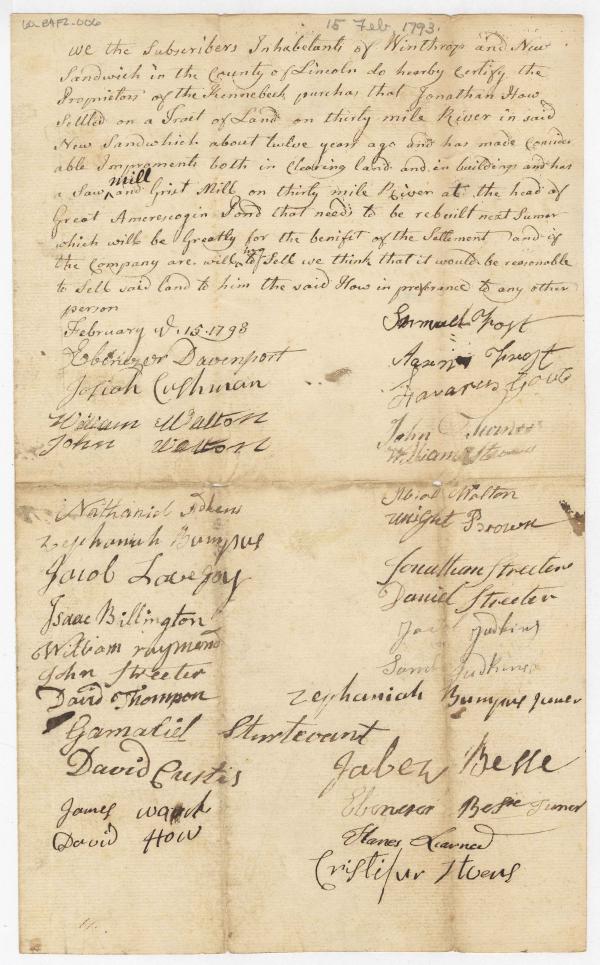 15 Feb. 1793.
We the Subscribers Inhabetants of Winthrop and New
Sandwich in the County of Lincoln do hearby Certify the
Proprietors of the Kennebeck purchas that Jonathan How
Settled on a Tract of Land on thirty mile River in said
New Sandwhich about twelve years ago and has made Consider
able Improments both in Clearing land and in buildings and has
a Saw mill and Grist Mill on thirty mile River at the head of
Great Amerescogin Pond that needs to be rebuilt next Sumer
which will be Greatly for the benifit of the Settement and if
the Company are willing to Sell we think that it would be reasonable
to Sell said land to him the said How in prefrance to any other
person
February 15. 1793
Samuel Frost
Ebenezer Davenport
Josiah Cushman
William Walton
John Turner
John Walton
William
Nathaniel
Abial Walton
Zephaniah Bumpus
Wright Brown
Jacob Lovejoy
Jonathan Streeter
Daniel Streeter
Isaac Billington
Judkins
William raymond
John Streeter
Saml Judkins
David Thompson
Zephaniah Bumpus Juner
Gamaliel Sturtevant
David Curtis
Jabez Besse
James
Ebenezer Besse Juner
David How
Learned
Cristifur